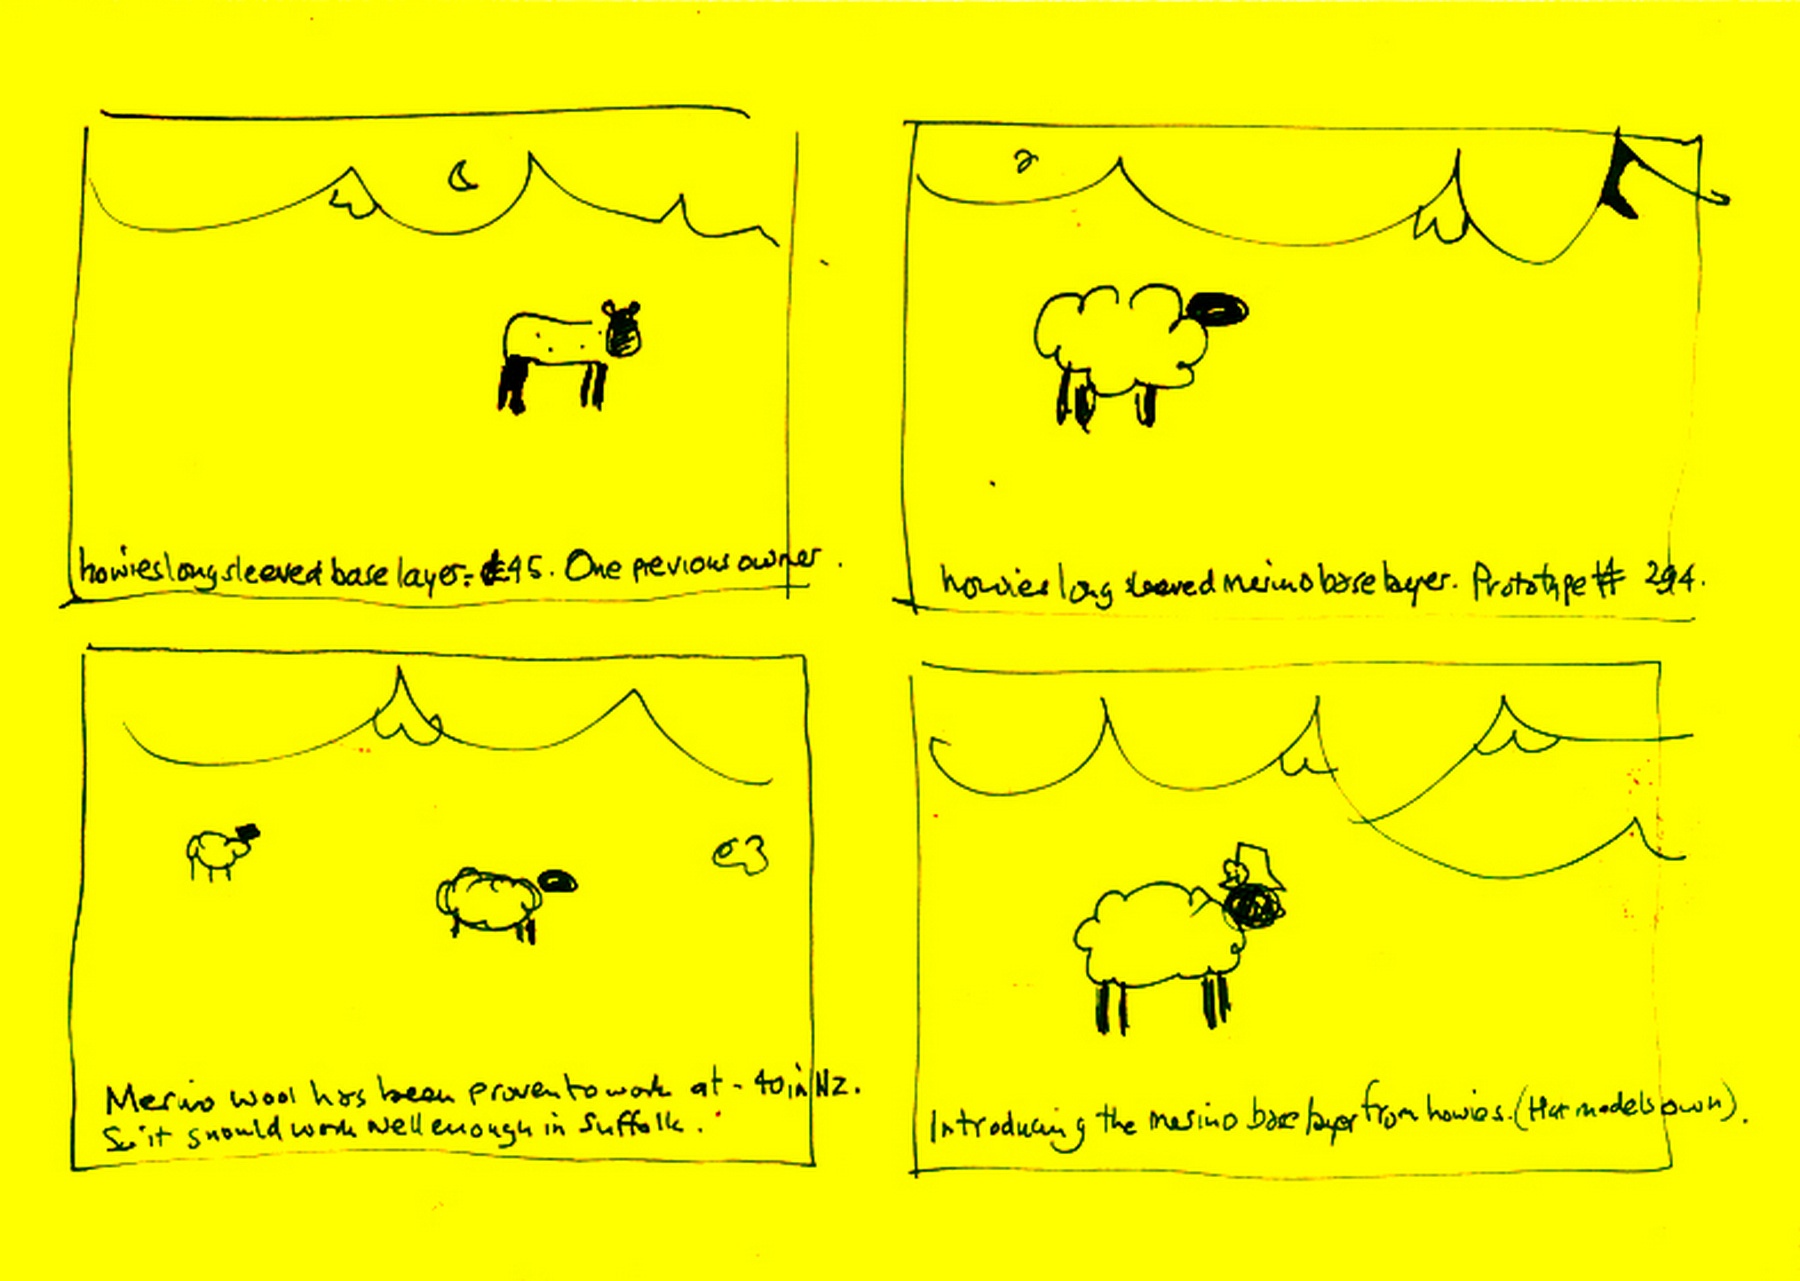 howies long sleeved base layer. £45. One previous owner.
howies long sleeved merino base layer. Prototype # 294.
Merino wool has been proven to work at -40 in NZ.
So it should work well enough in Suffolk.
Introducing the merino base layer from howies. (Hat models own).